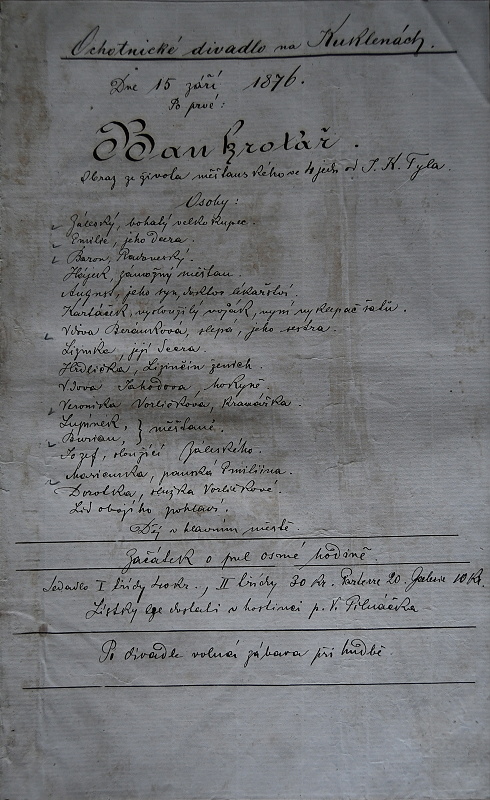 Ochotnické divadlo na Kuklenách.
Dne 15 září 1876.
Po prvé:
Bankrotář.
Obraz ze života měšťanského ve 4 jedn. od J. K. Tyla.
Osoby:
Záleský, bohatý velkokupec.
Emilie, jeho dcera.
Baron, Radonevský.
Hájek, zámožný měšťan.
August, jeho syn, doktor lékařství.
Kartáček, vysloužilý voják, nyní vyklepač šatů.
Vdova Beránkova, slepá, jeho sestra.
Lizinka, její dcera.
Hrdlička, Lizinčin ženich.
Vdova Jahodova, hokyně.
Veronika Vorličkova, kramářka.
Lupínek, } měšťané.
Burian,
Jozef, sloužící Záleského.
Marienka, panská Emiliina.
Dorotka, služka Vorličkové.
Lid obojího pohlaví.
Děj v hlavním městě.
Začátek o půl osmé hodině.
Sedadlo I třídy 40 kr., II třídy 30 kr. Parterre 20. Galerie 10 kr.
Lístky lze dostati v hostinci p. V. Pilnáčka
Po divadle volná zábava při hudbě.